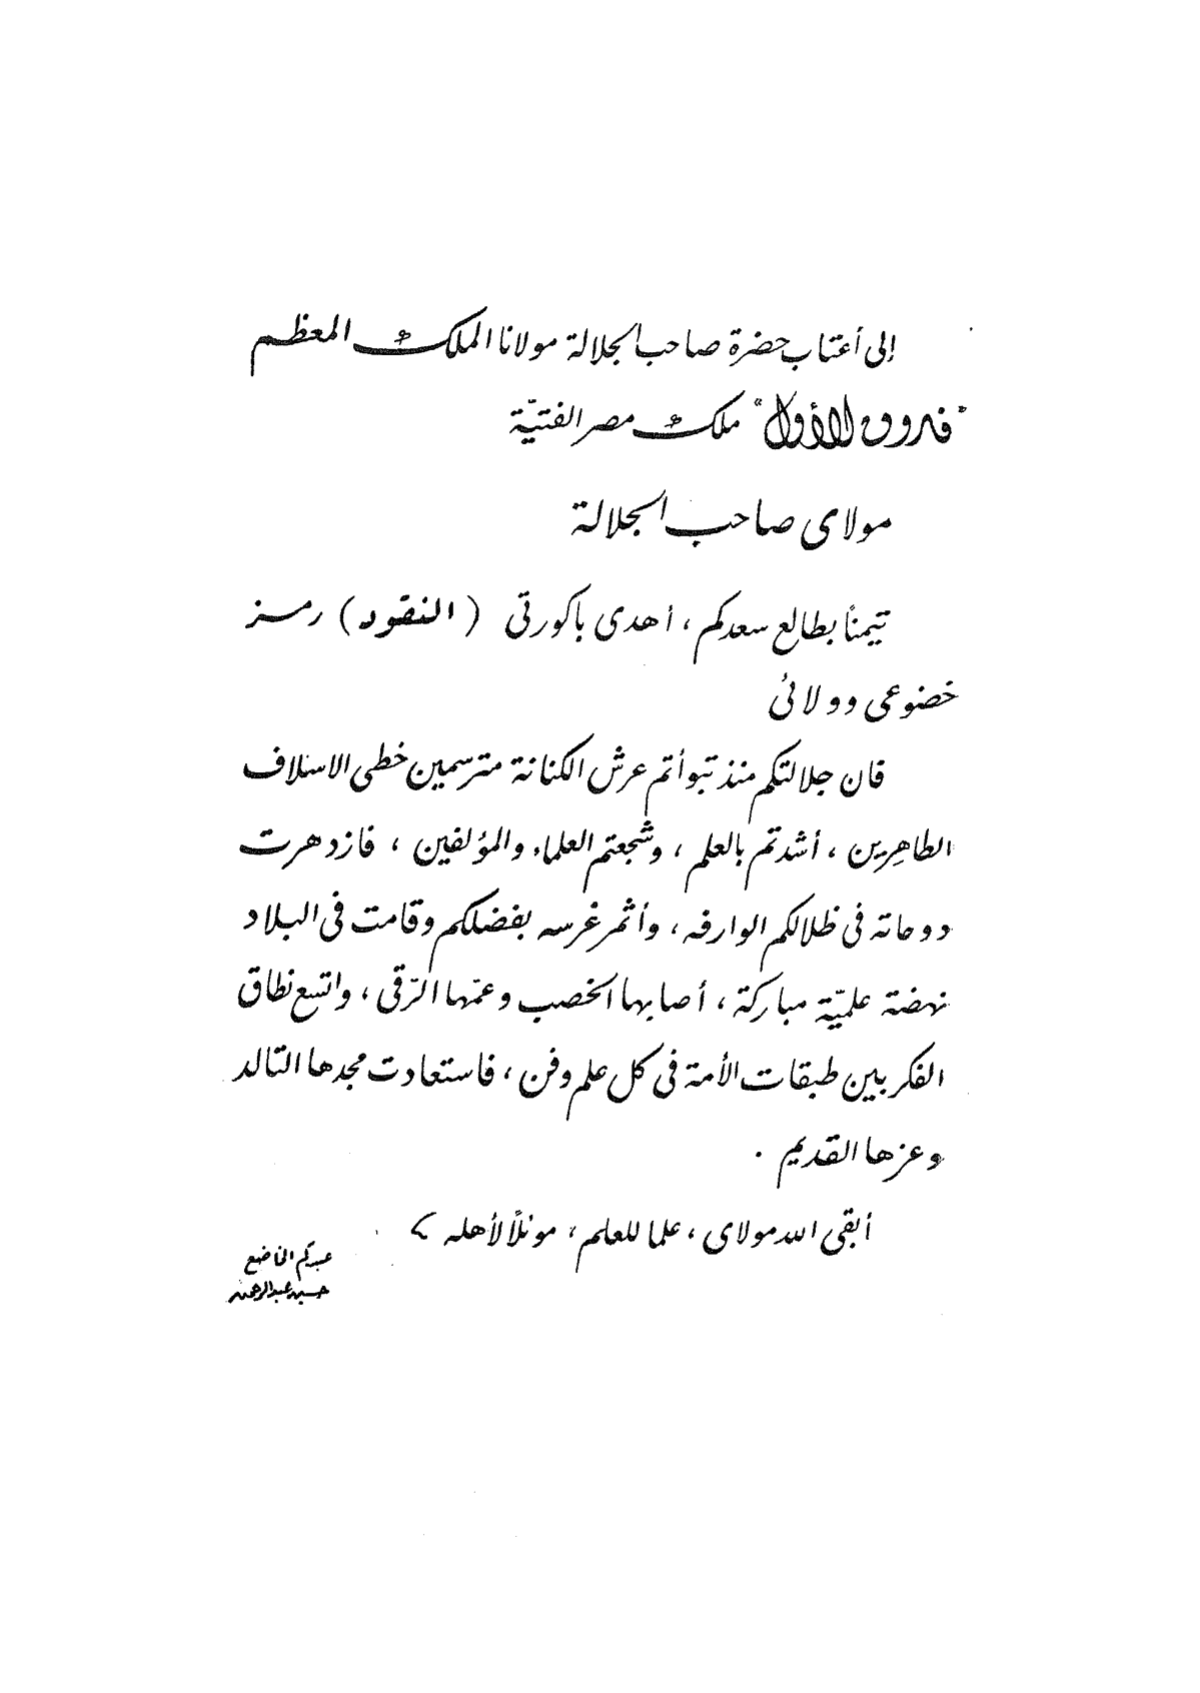 إلى أعتاب حضرة صاحب الجلالة مولانا الملك المعظم
"فاروق الأول" ملك مصر الفتيّة
مولاى صاحب الجلالة
تيمنًا بطالع سعدكم ، أهدى باكورتى ( النقود ) رمز
خضوعى وولائى
فان جلالتكم منذ تبوأتم عرش الكنانة مترسمين خطى الاسلاف
الطاهِرين ، أشدتم بالعلم ، وشجعتم العلماء والمؤلفين ، فازدهرت
دوحاته فى ظلالكم الوارفه ، وأثمر غرسه بفضلكم وقامت فى البلاد
نهضة علميّة مباركة ، أصابها الخصب وعمّها الرّقى ، واتسع نطاق
الفكر بين طبقات الأمة فى كل علم وفن ، فاستعادت مجدها التالد
وعزها القديم .
أبقى الله مولاى ، علما للعلم ، موئلًا لأهله
عبدكم الخاضع
حسين عبد الرحمن